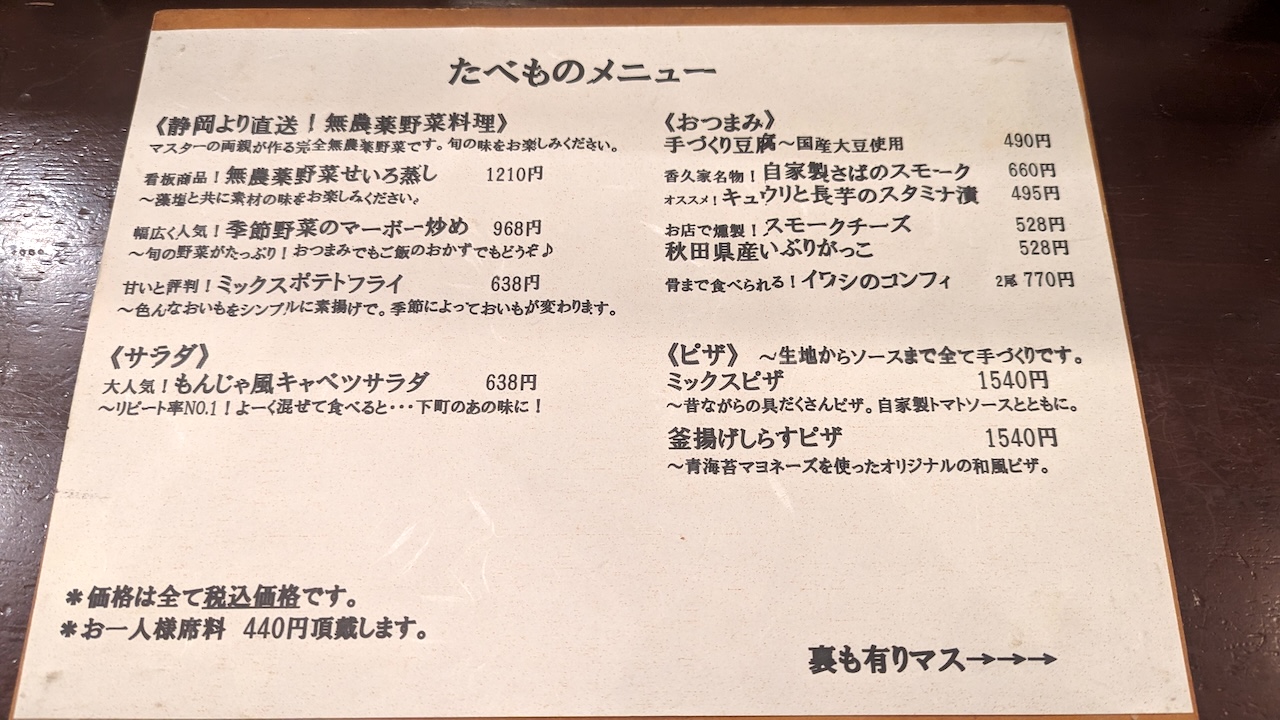 たべものメニュー
《静岡より直送！無農薬野菜料理》
マスターの両親が作る完全無農薬野菜です。旬の味をお楽しみください。
看板商品！無農薬野菜せいろ蒸し 1210円
～藻塩と共に素材の味をお楽しみください。
幅広く人気！季節野菜のマーボー炒め 968円
～旬の野菜がたっぷり！おつまみでもご飯のおかずでもどうぞ♪
甘いと評判！ミックスポテトフライ 638円
～色んなおいもをシンプルに素揚げで。季節によっておいもが変わります。
《サラダ》
大人気！もんじゃ風キャベツサラダ 638円
～リピート率NO.1！よーく混ぜて食べると・・・下町のあの味に！
《おつまみ》
手づくり豆腐～国産大豆使用 490円
香久家名物！自家製さばのスモーク 660円
オススメ！キュウリと長芋のスタミナ漬 495円
お店で燻製！スモークチーズ 528円
秋田県産いぶりがっこ 528円
骨まで食べられる！イワシのコンフィ 2尾 770円
《ピザ》 ～生地からソースまで全て手づくりです。
ミックスピザ 1540円
～昔ながらの具だくさんピザ。自家製トマトソースとともに。
釜揚げしらすピザ 1540円
～青海苔マヨネーズを使ったオリジナルの和風ピザ。
＊価格は全て税込価格です。
＊お一人様席料 440円頂戴します。
裏も有りマス→→→